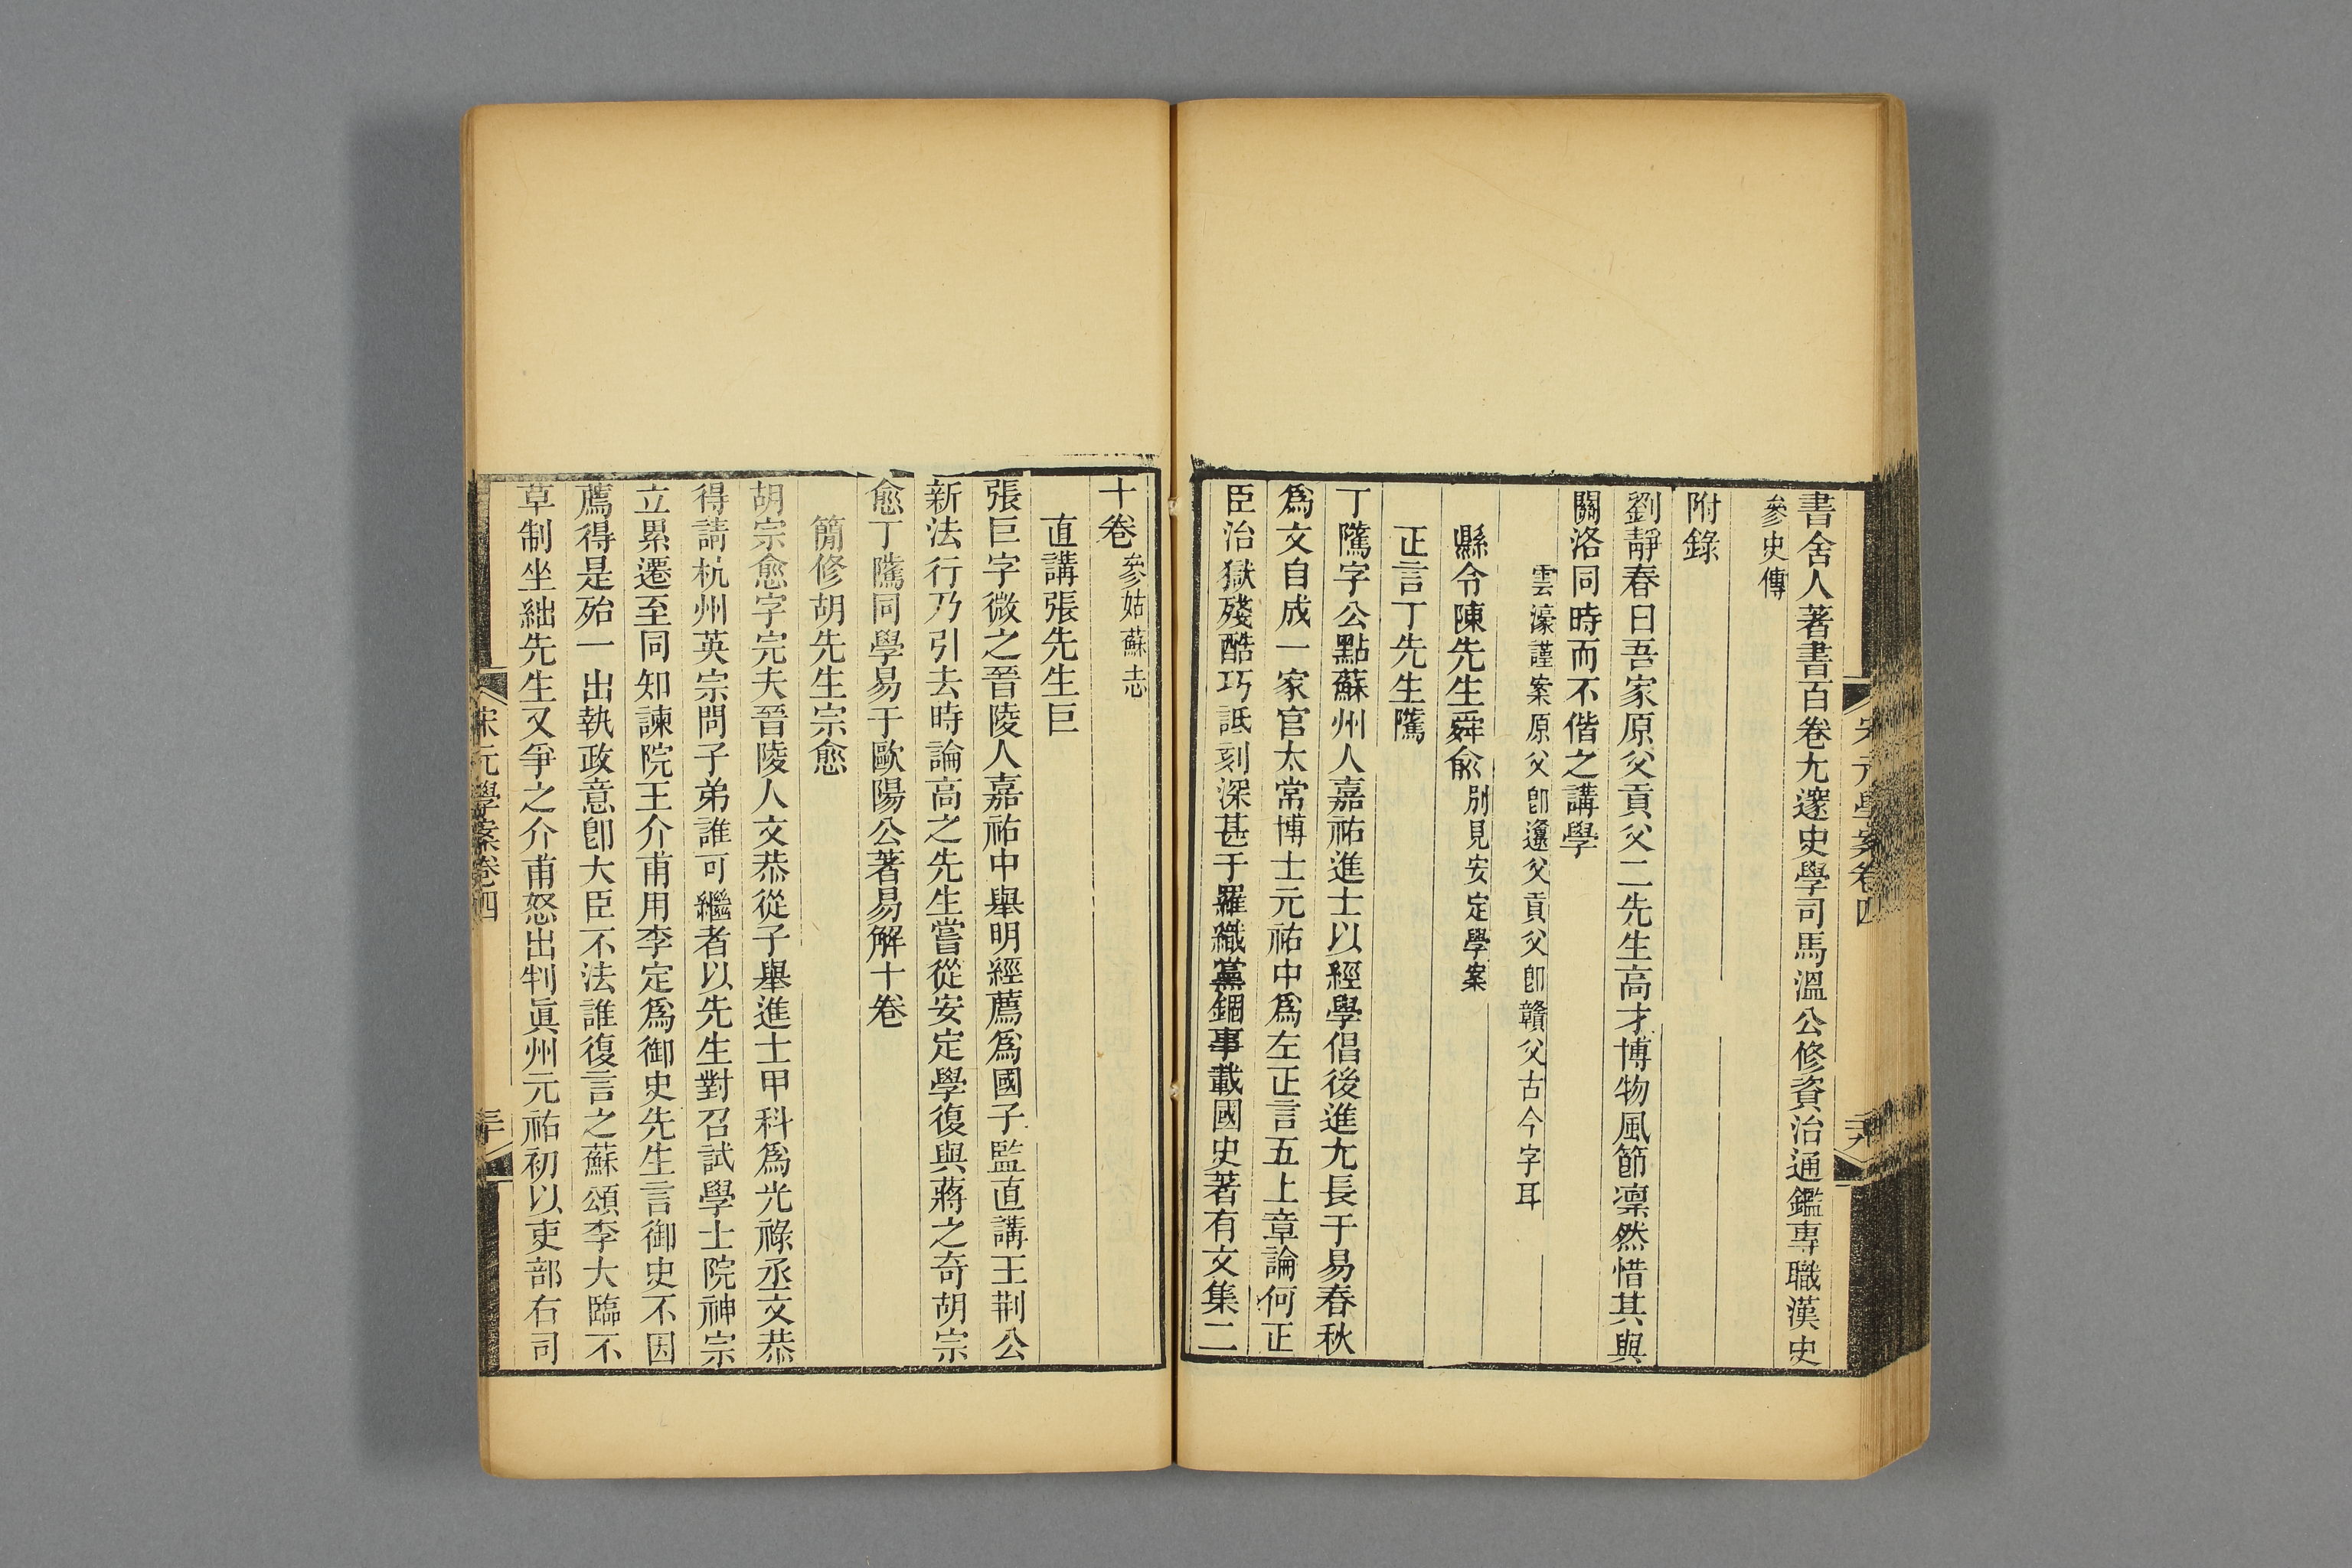 書舍人著書百卷尤邃史學司馬溫公修資治通鑑專職漢史
參史傳
附錄
劉靜春曰吾家原父貢父二先生高才博物風節凜然惜其與
關洛同時而不偕之講學
雲濠謹案原父卽邍父貢父卽贛父古今字耳
縣令陳先生舜俞別見安定學案
正言丁先生隲
丁隲字公點蘇州人嘉祐進士以經學倡後進尤長于易春秋
爲文自成一家官太常博士元祐中爲左正言五上章論何正
臣治獄殘酷巧詆刻深甚于羅織黨錮事載國史著有文集二
宋元學案卷四
十卷參姑蘇志
直講張先生巨
張巨字微之晉陵人嘉祐中舉明經薦爲國子監直講王荆公
新法行乃引去時論高之先生嘗從安定學復與蔣之奇胡宗
愈丁隲同學易于歐陽公著易解十卷
簡修胡先生宗愈
胡宗愈字完夫晉陵人文恭從子舉進士甲科爲光祿丞文恭
得請杭州英宗問子弟誰可繼者以先生對召試學士院神宗
立累遷至同知諫院王介甫用李定爲御史先生言御史不因
薦得是殆一出執政意卽大臣不法誰復言之蘇頌李大臨不
草制坐絀先生又爭之介甫怒出判眞州元祐初以吏部右司
宋元學案卷四
三十